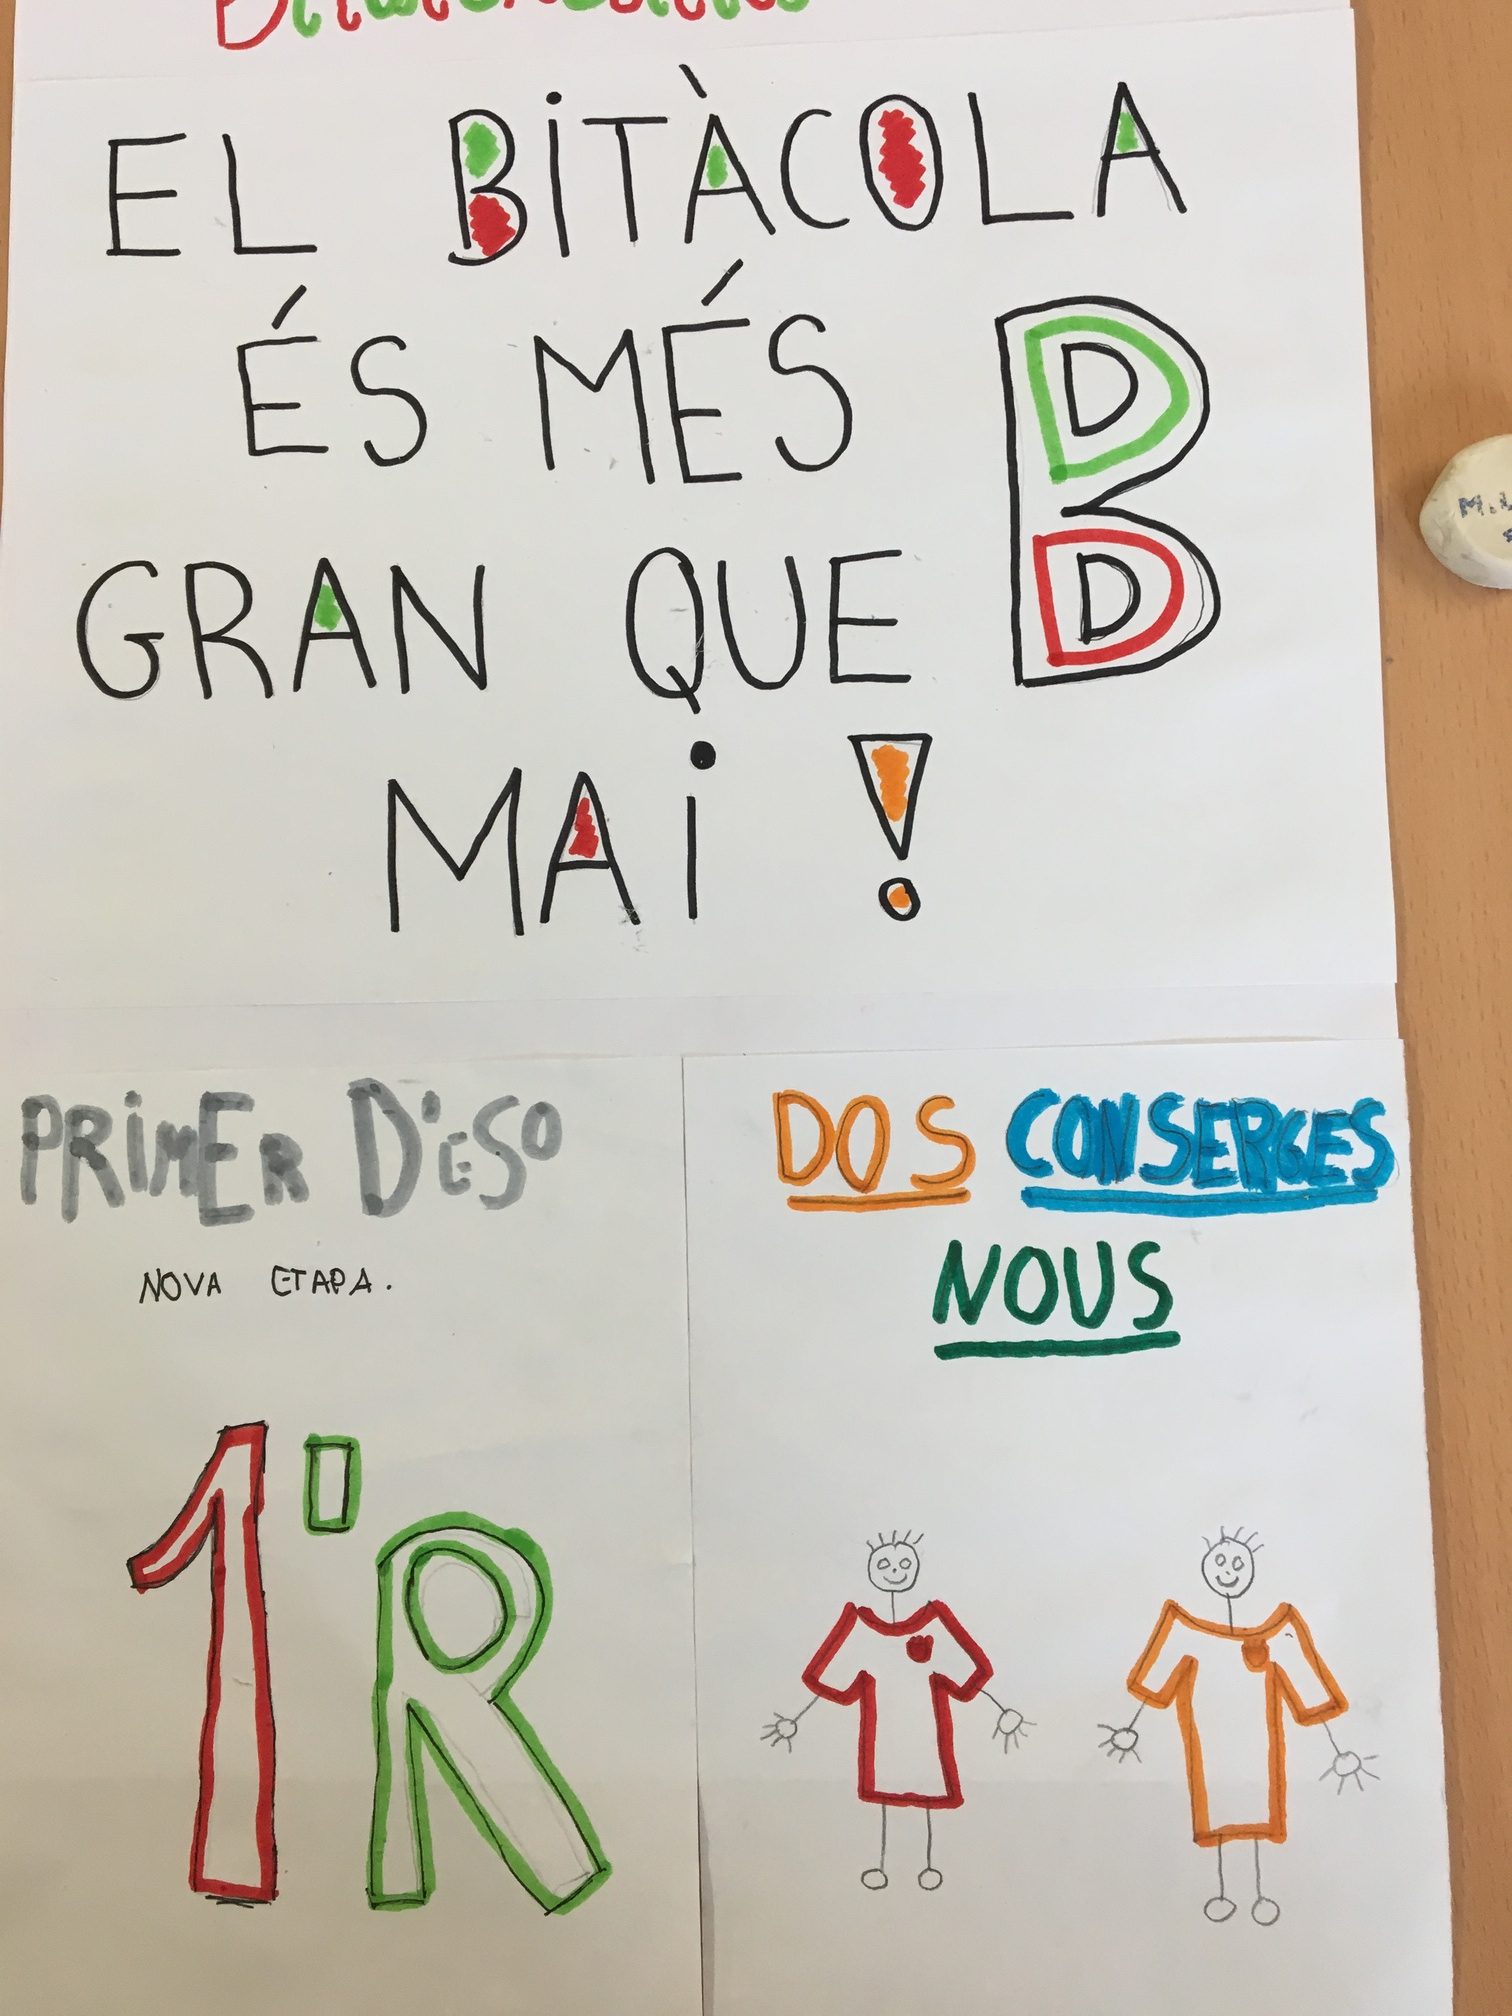 EL BiTÀCOLA
ÉS MÉS
GRAN QUE
B
MAi !
PRiMER D'ESO
NOVA ETAPA.
1'R
DOS CONSERGES
NOUS